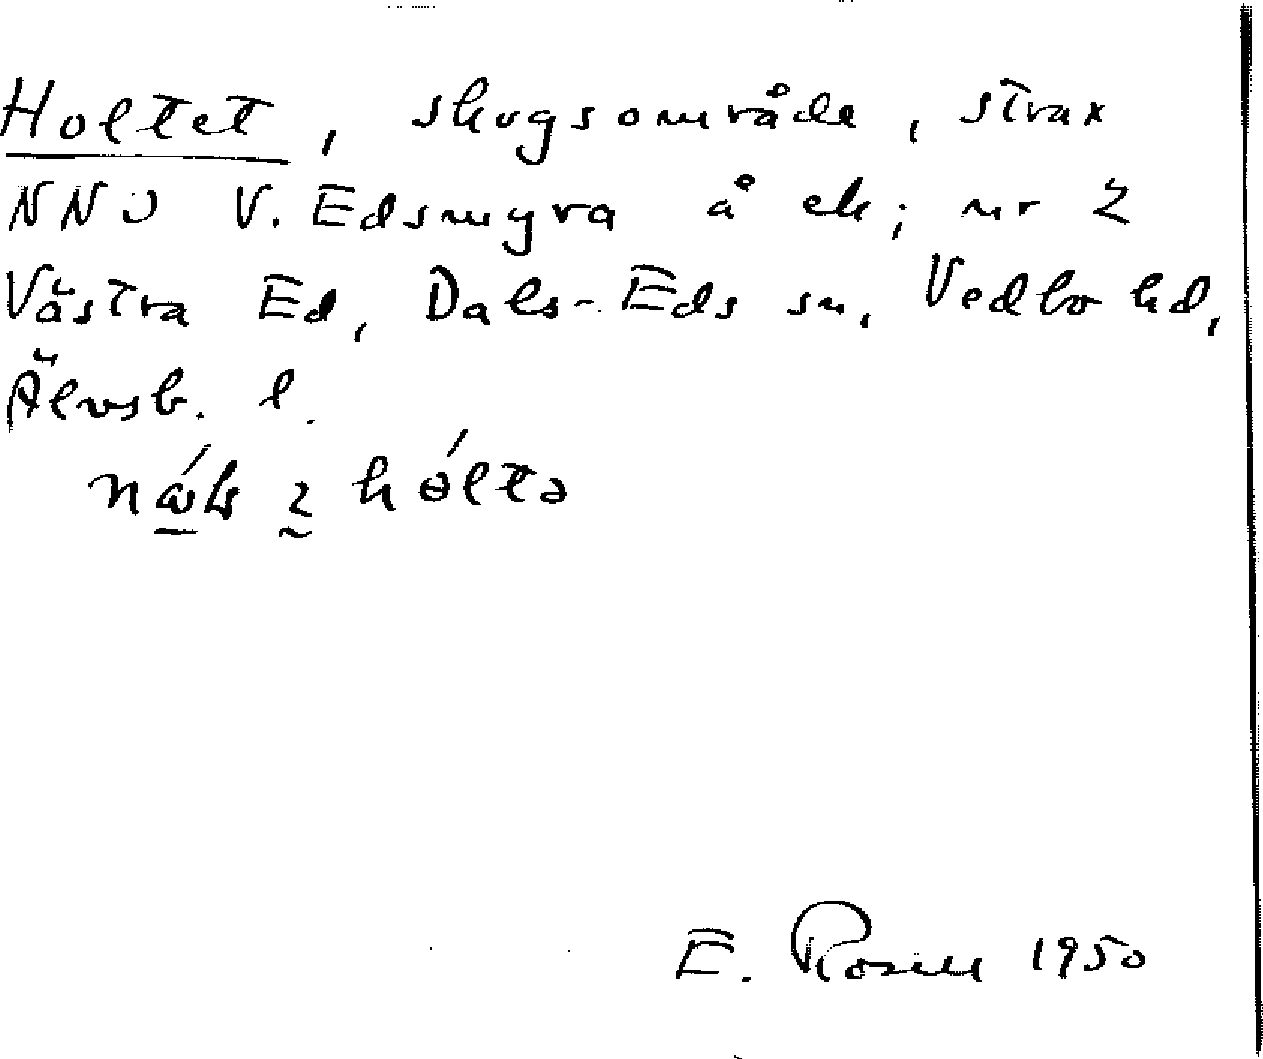 Holtet, skogsområde, strax
NNO V. Edsmyra å ek; nr 2
Västra Ed, Dals-Eds sn, Vedbo hd,
Älvsb. l.
hóltə
E. Rosell 1950